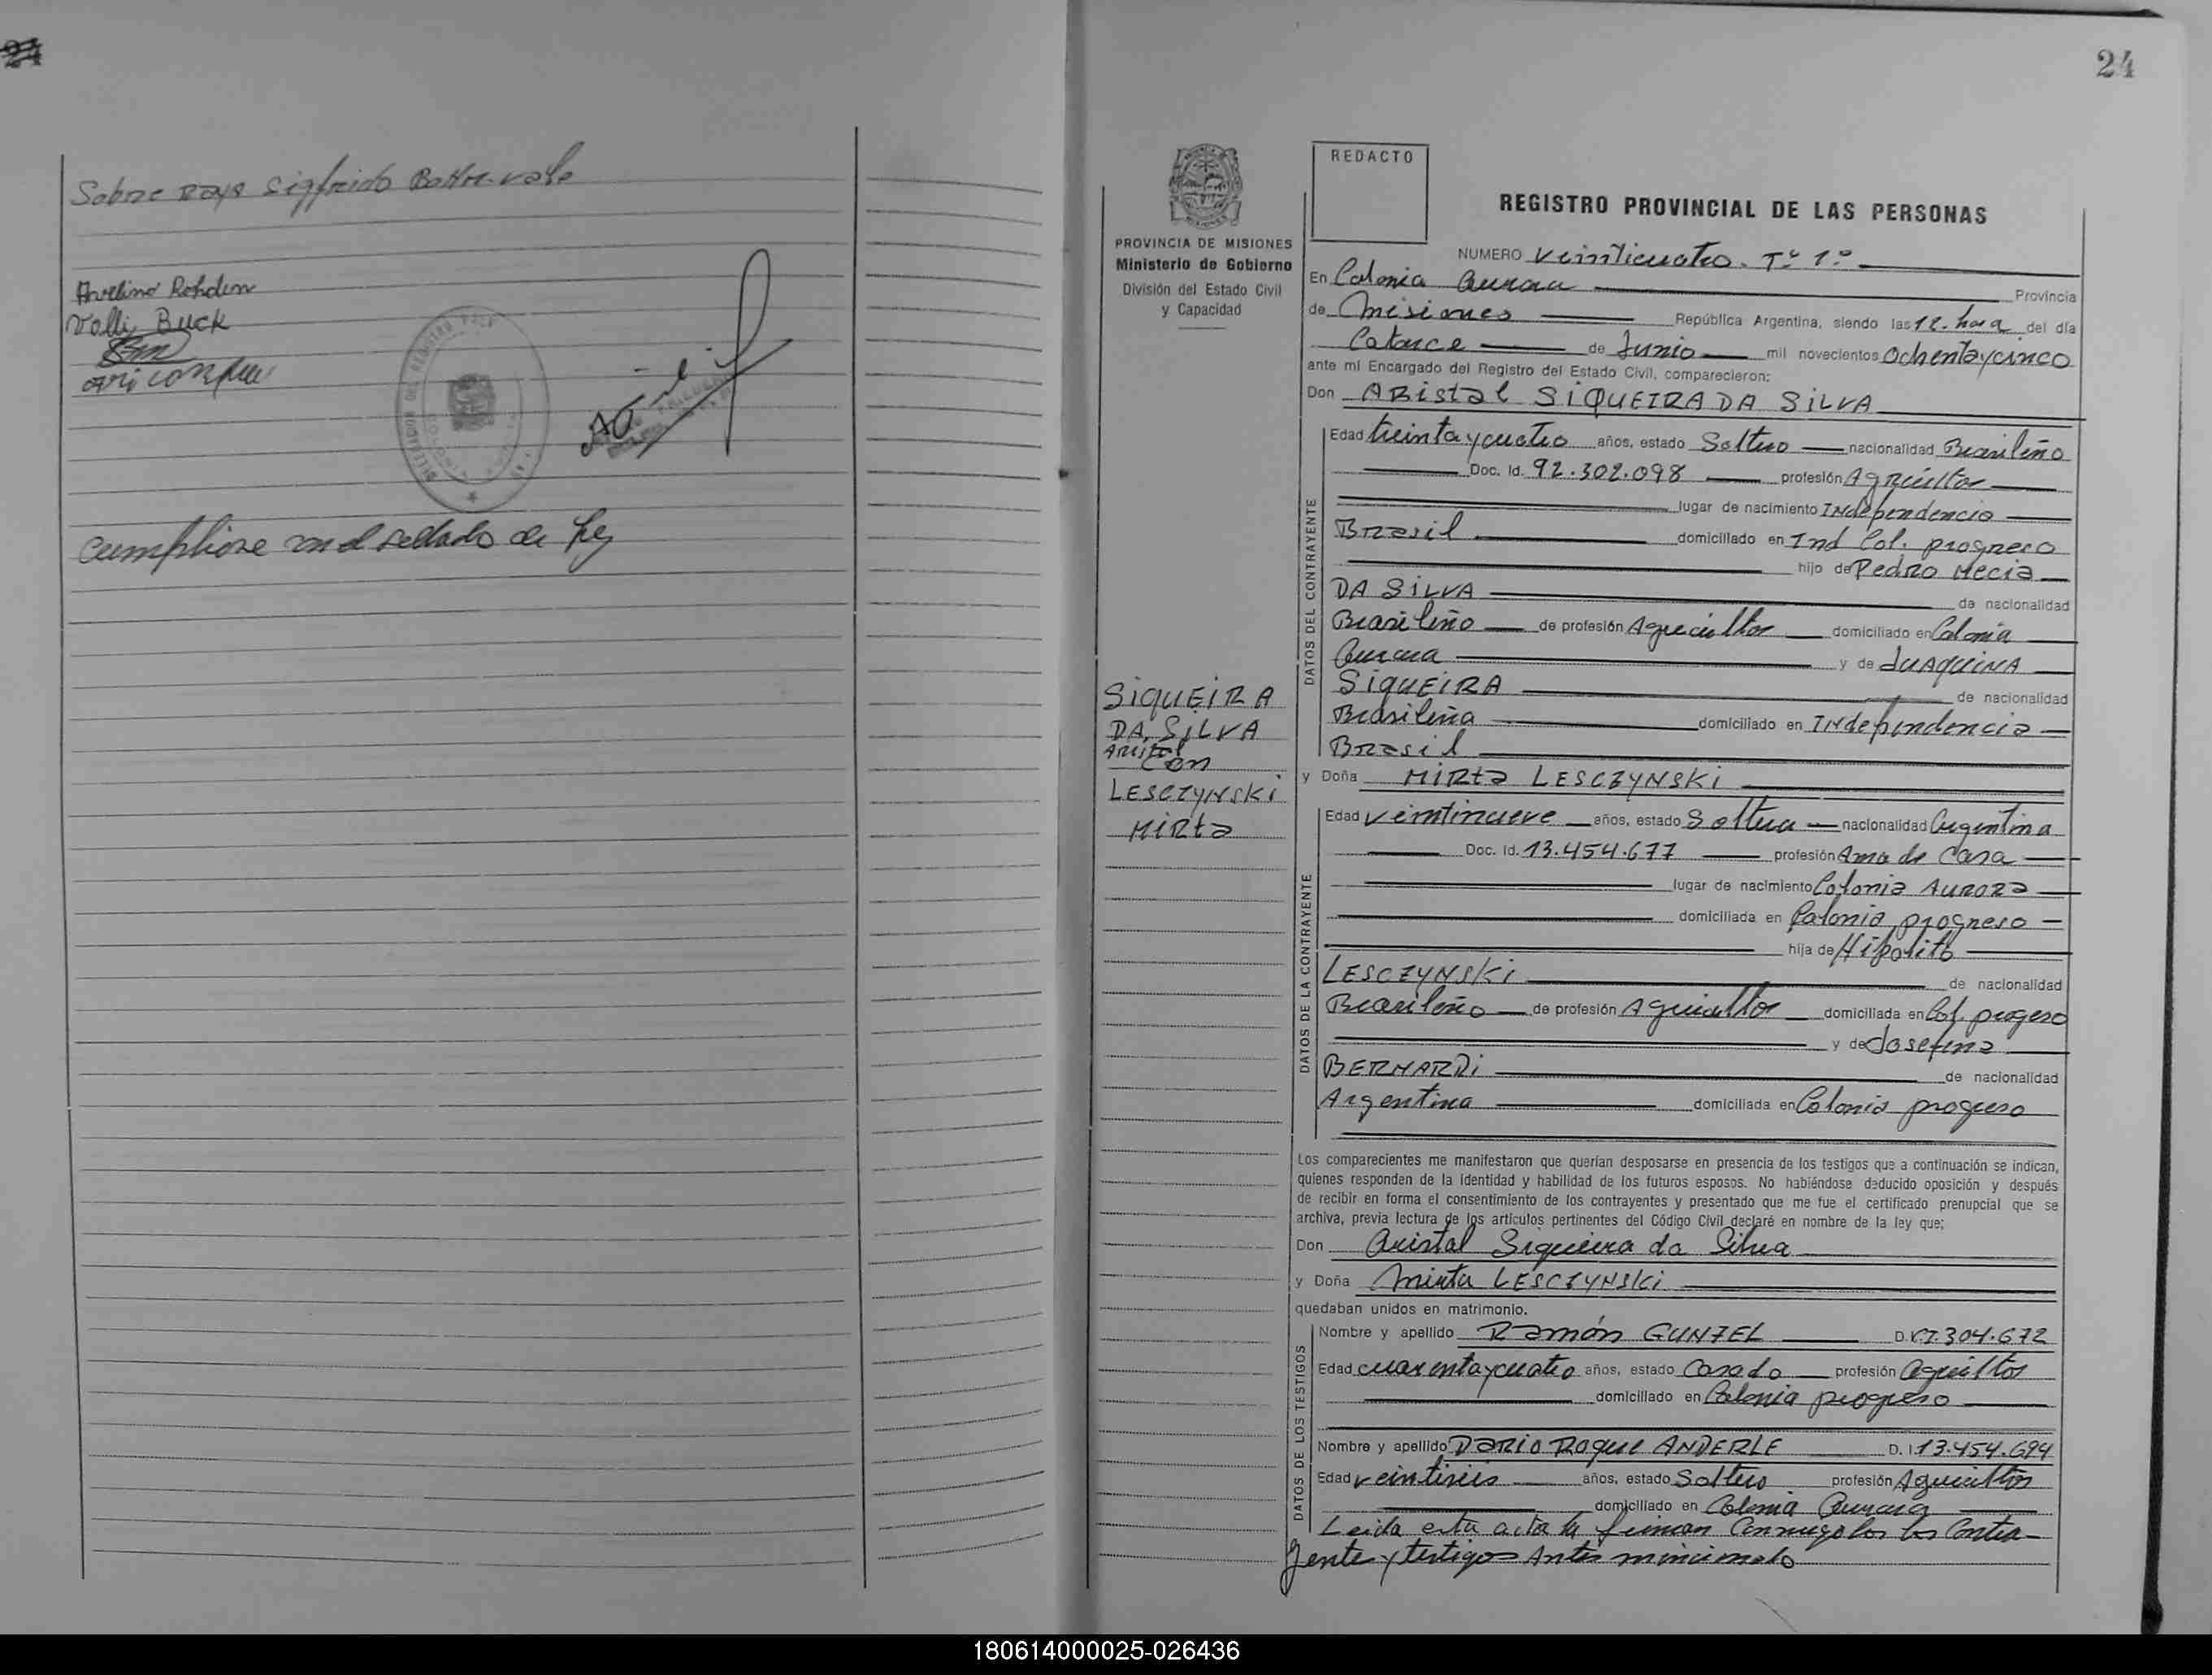 24
Sobre raya Sigfreido Vale
Avelino Rohden
Volli Buck
Cumpliose con el sellado de Ley
24
REDACTO
REGISTRO PROVINCIAL DE LAS PERSONAS
PROVINCIA DE MISIONES
Ministerio de Gobierno
División del Estado Civil
y Capacidad
NUMERO veinticuatro. Tº 1º
En Colonia Aurora Provincia
de Misiones República Argentina, siendo las 12. hora del día
Catorce de Junio mil novecientos Ochentaycinco
ante mi Encargado del Registro del Estado Civil, comparecieron:
Don ARistal SiQUEIRA DA SiLVA
DATOS DEL CONTRAYENTE
Edad treintaycuatro años, estado Soltero nacionalidad Brasileño
Doc. Id. 92.302.098 profesión Agricultor
lugar de nacimiento Independencia
Brasil domiciliado en Ind Col. progreso
hijo de Pedro Mecia
DA SiLVA de nacionalidad
Brasileño de profesión Agricultor domiciliado en Colonia
Aurora y de JUAQUINA
SIQUEIRA de nacionalidad
Brasileña domiciliado en Independencia
Brasil
SIQUEIRA
DA SILVA
Aristal
Con
LESCZYNSKi
MIRta
y Doña MIRta LESCZYNSKi
DATOS DE LA CONTRAYENTE
Edad veintinueve años, estado Soltera nacionalidad Argentina
Doc. Id. 13.454.677 profesión Ama de Casa
lugar de nacimiento Colonia Aurora
domiciliada en Colonia progreso
hija de Hipolito
LESCZYNSKi de nacionalidad
Brasileño de profesión Agricultor domiciliada en Col. progeso
y de Josefina
BERNARDi de nacionalidad
Argentina domiciliada en Colonia progreso
Los comparecientes me manifestaron que querían desposarse en presencia de los testigos que a continuación se indican,
quienes responden de la identidad y habilidad de los futuros esposos. No habiéndose deducido oposición y después
de recibir en forma el consentimiento de los contrayentes y presentado que me fue el certificado prenupcial que se
archiva, previa lectura de los artículos pertinentes del Código Civil declaré en nombre de la ley que;
Don Aristal Siqueira da Silva
y Doña Mirta LESCZYNSKi
quedaban unidos en matrimonio.
DATOS DE LOS TESTIGOS
Nombre y apellido Ramón GUNZEL D. I 7.304.672
Edad cuarentaycuatro años, estado Casado profesión Agricultor
domiciliado en Colonia progreso
Nombre y apellido Dario Roque ANDERLE D. I 13.454.694
Edad veintiseis años, estado Soltero profesión Agricultor
domiciliado en Colonia Aurora
Leida esta acta la firman Conmigo los los Contra-
yente y testigos Antes mincionado
180614000025-026436